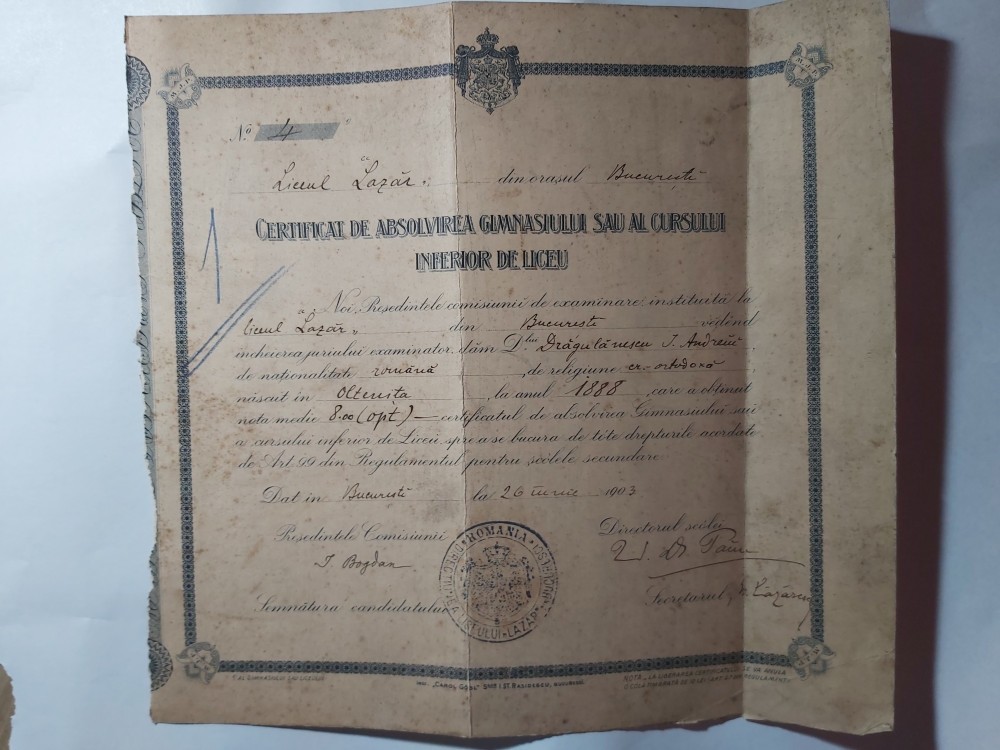 No 4
Liceul Lazăr din orașul București
CERTIFICAT DE ABSOLVIREA GIMNASIULUI SAU AL CURSULUI
INFERIOR DE LICEU
Noi, Președintele comisiunii de examinare instituită la
liceul „Lazăr" din București vedênd
încheierea juriului examinator, dăm D-lui Drăgulănescu I. Andreiu
de naționalitate română, de religiune cr.-ortodoxă,
născut în Oltenița, la anul 1888, care a obținut
nota medie 8.00 (opt) — certificatul de absolvirea Gimnasiului saŭ
a cursului inferior de Liceŭ, spre a se bucura de tóte drepturile acordate
de Art. 99 din Regulamentul pentru școlele secundare.
Dat în București la 26 iunie 1903
Președintele Comisiunii Directorul școlii
I. Bogdan
Semnătura candidatului Secretarul
ROMANIA
LICEULUI LAZAR